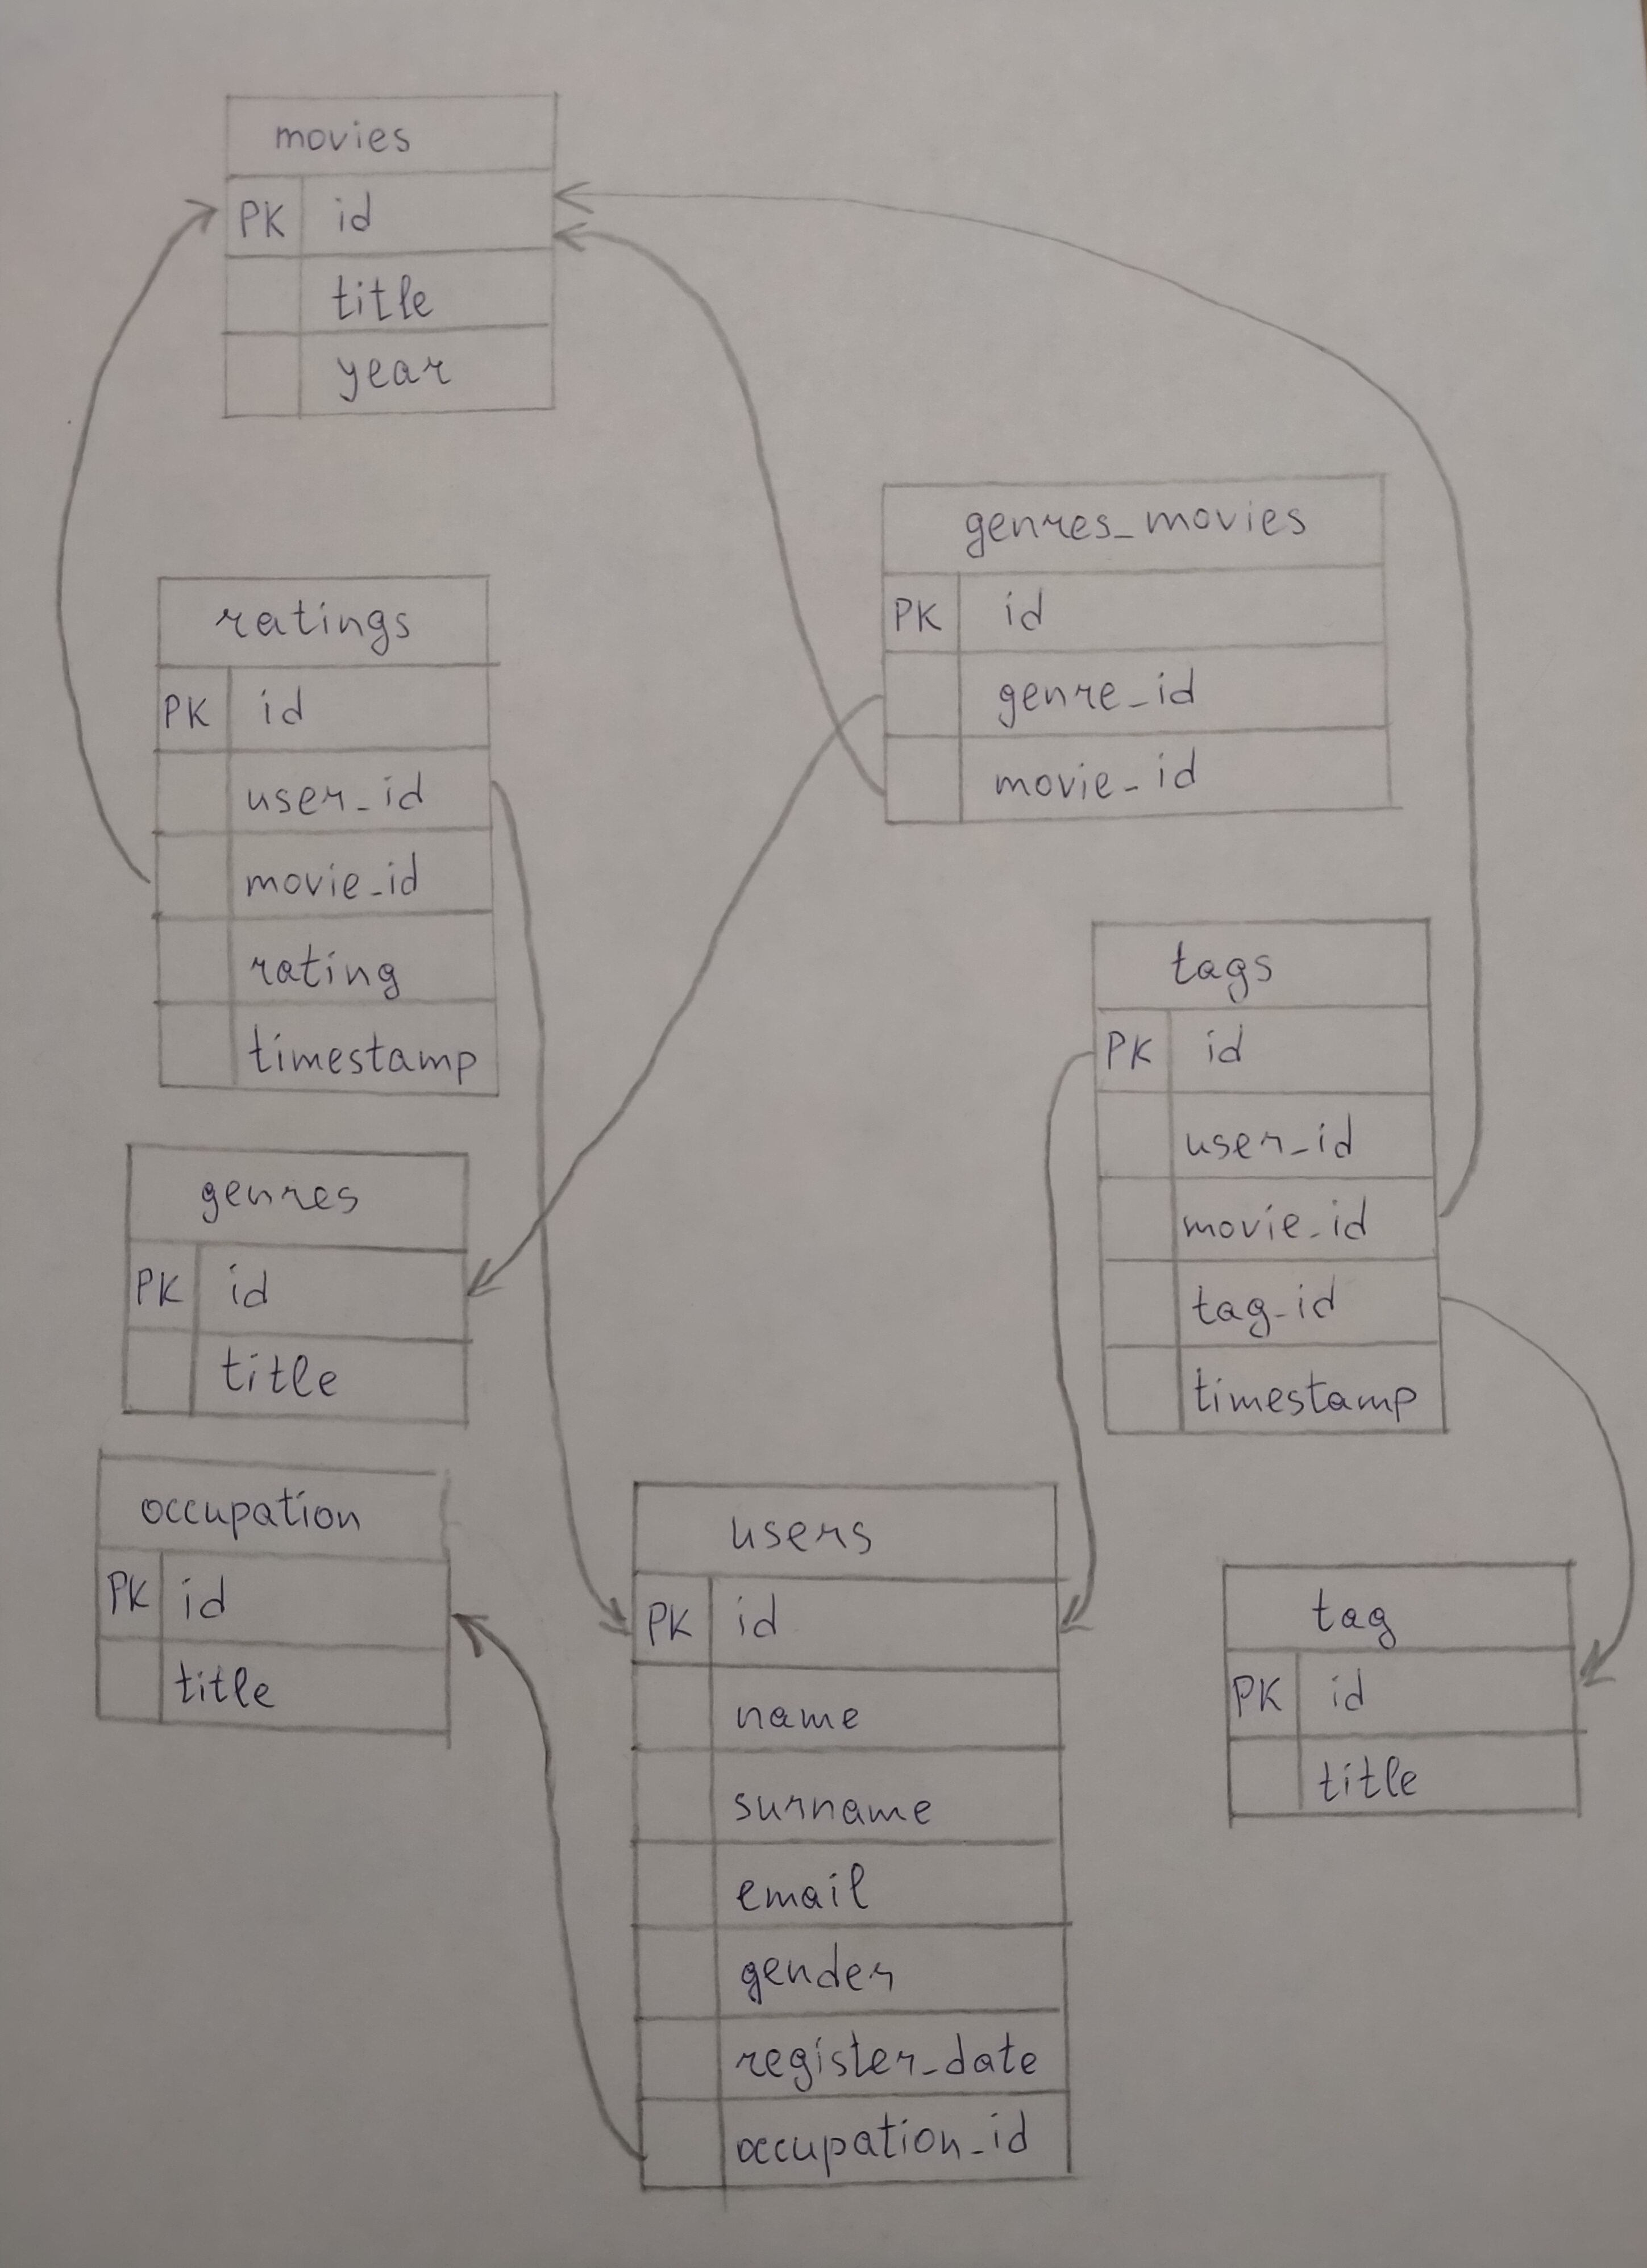 movies
PK id
title
year
genres_movies
PK id
genre_id
movie_id
ratings
PK id
user_id
movie_id
rating
timestamp
tags
PK id
user_id
movie_id
tag_id
timestamp
genres
PK id
title
occupation
PK id
title
users
PK id
name
surname
email
gender
register_date
occupation_id
tag
PK id
title